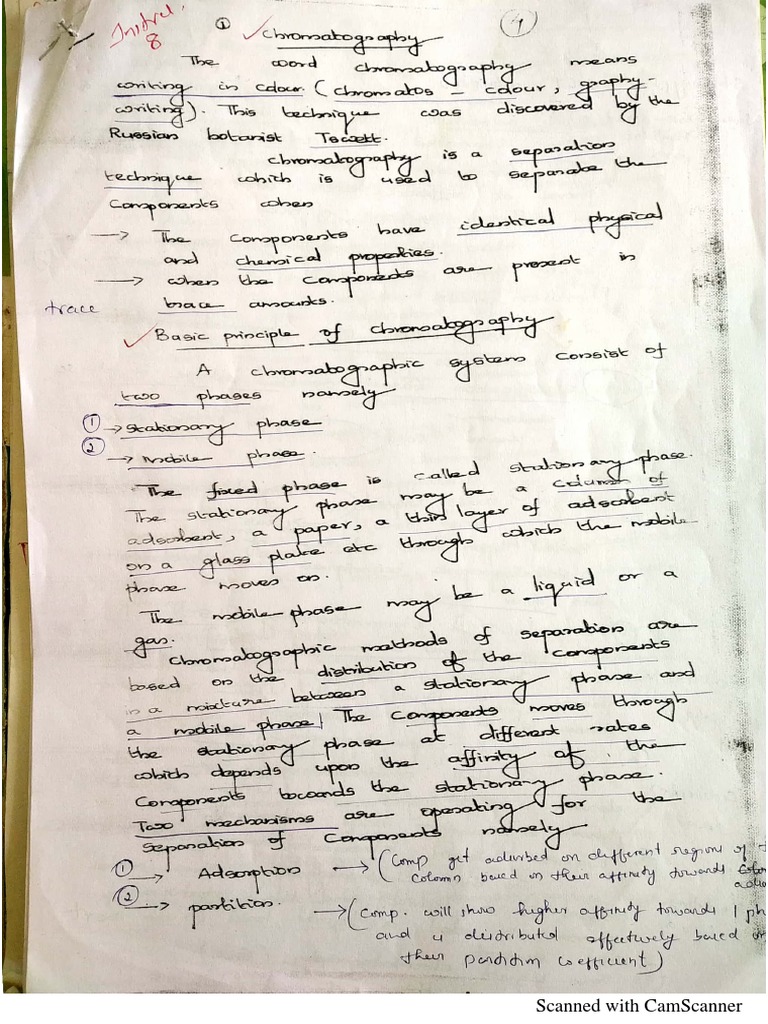 Instru.
8
① Chromatography
4
The word chromatography means
writing in colour. (chromatos - colour, graphy-
writing). This technique was discovered by the
Russian botanist Tswett.
chromatography is a separation
technique which is used to separate the
Components when
→ The components have identical physical
and chemical properties.
→ when the components are present in
trace
trace amounts.
Basic principle of chromatography
A chromatographic system consist of
two phases namely
① → stationary phase
② → mobile phase.
The fixed phase is called stationary phase.
The stationary phase may be a column of
adsorbent, a paper, a thin layer of adsorbent
on a glass plate etc through which the mobile
phase moves on.
The mobile phase may be a liquid or a
gas.
Chromatographic methods of separation are
based on the distribution of the components
in a mixture between a stationary phase and
a mobile phase. The components moves through
the stationary phase at different rates
which depends upon the affinity of the
Components towards the stationary phase.
Two mechanisms are operating for the
separation of components namely
① → Adsorption → (Comp get adsorbed on different regions of
column based on their affinity towards
② → partition. → (Comp. will show higher affinity towards 1 ph
and is distributed effectively based on
their partition coefficient)
Scanned with CamScanner